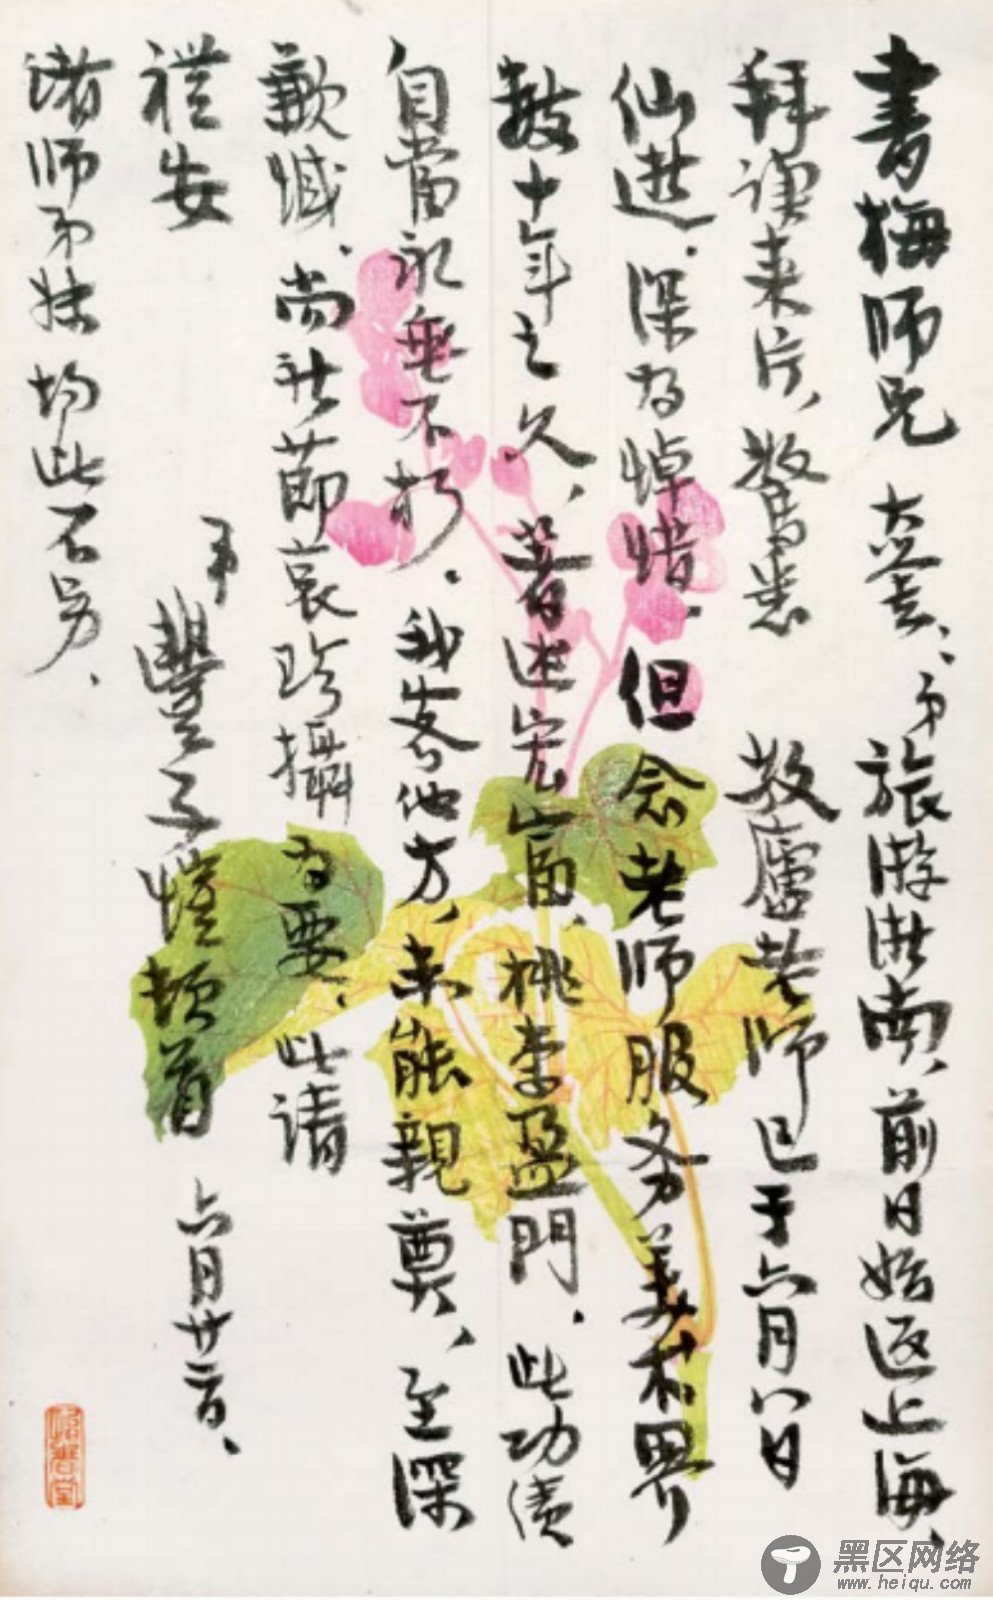 書梅師兄 大鑒、弟旅游浙南、前日始返上海、
拜讀来片、驚悉 敬廬老師已于六月八日
仙逝.深为悼惜.但念老師服务美术界
数十年之久、著述宏富、桃李盈門.此功绩
自當永垂不朽.我客他方、未能親奠、至深
歉憾.尚祈節哀珍攝为要.此請
禮安
弟 豐子愷頓首 六月廿二日、
诸师弟妹均此不另、
黑区网络
www.heiqu.com